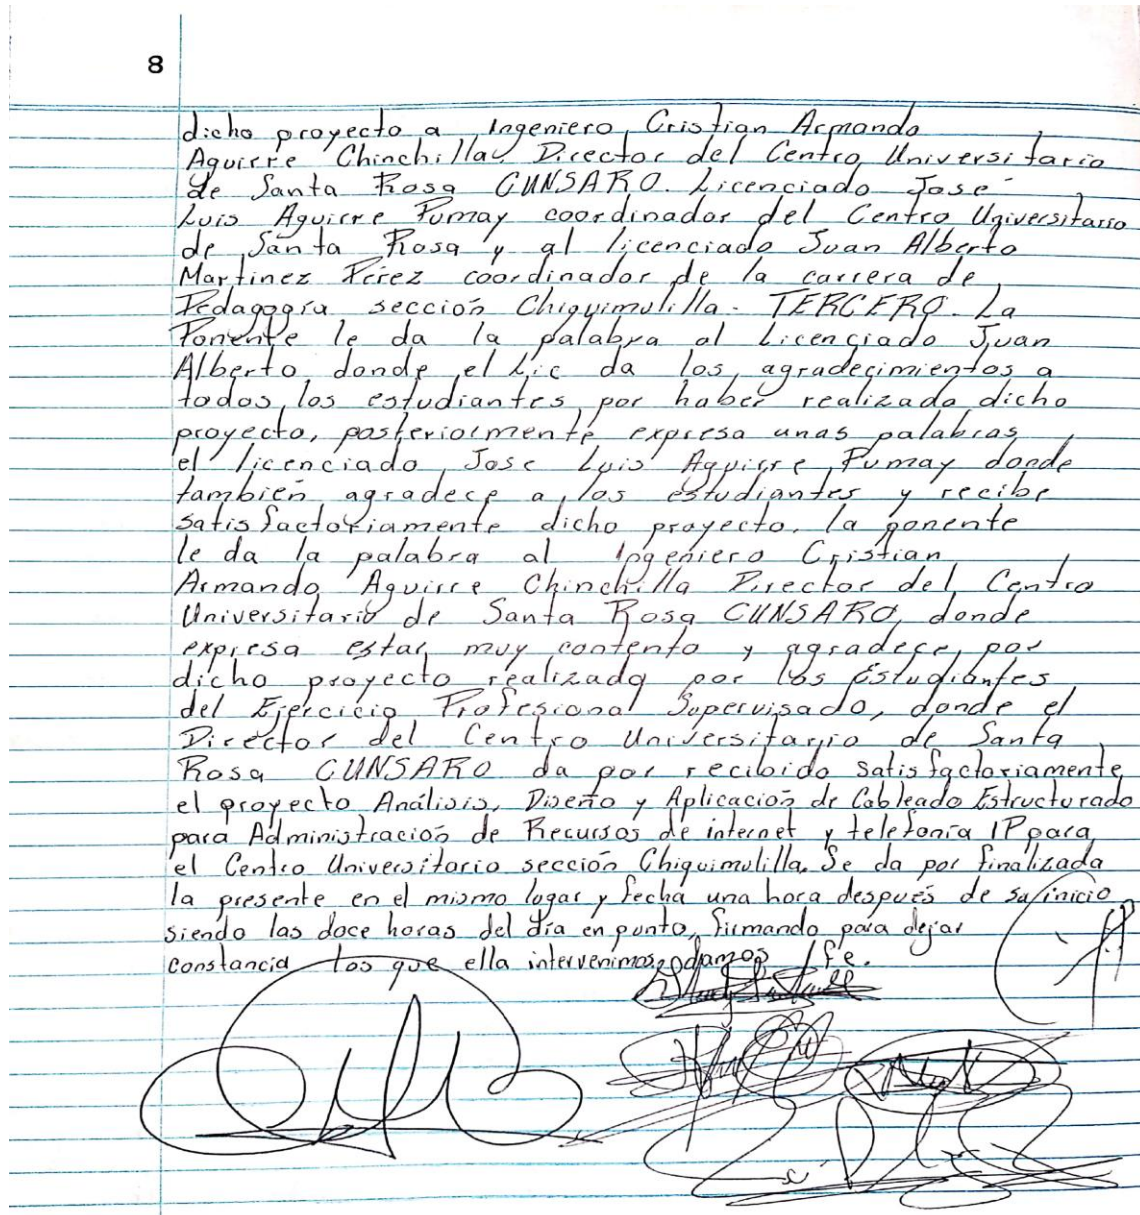 8
dicho proyecto a Ingeniero, Cristian Armando
Aguirre Chinchilla. Director del Centro Universitario
de Santa Rosa CUNSARO. Licenciado José
Luis Aguirre Pumay coordinador del Centro Universitario
de Santa Rosa y al licenciado Juan Alberto
Martinez Pérez coordinador de la carrera de
Pedagogía sección Chiquimulilla. TERCERO. La
Ponente le da la palabra al Licenciado Juan
Alberto, donde el Lic da los agradecimientos a
todos los estudiantes por haber realizado dicho
proyecto, posteriormente expresa unas palabras
el licenciado Jose Luis Aguirre Pumay donde
también agradece a los estudiantes y recibe
satisfactoriamente dicho proyecto. la ponente
le da la palabra al Ingeniero Cristian
Armando Aguirre Chinchilla Director del Centro
Universitario de Santa Rosa CUNSARO, donde
expresa estar muy contento y agradece por
dicho proyecto realizado por los Estudiantes
del Ejercicio Profesional Supervisado, donde el
Director del Centro Universitario de Santa
Rosa CUNSARO da por recibido satisfactoriamente
el proyecto Análisis, Diseño y Aplicación de Cableado Estructurado
para Administración de Recursos de internet y telefonía IP para
el Centro Universitario sección Chiquimulilla. Se da por finalizada
la presente en el mismo lugar y fecha una hora después de su inicio
siendo las doce horas del día en punto, firmando para dejar
constancia los que ella intervenimos, damos fe.